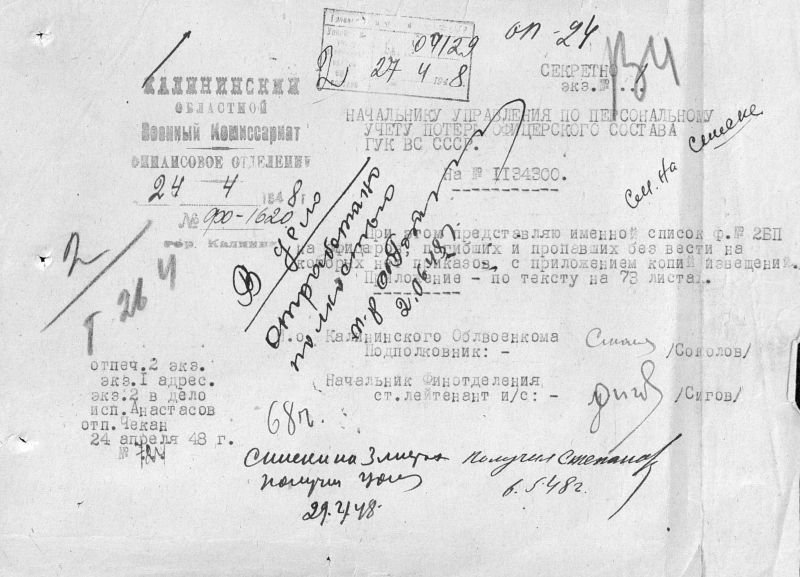 оп-24
04129
27 4 1948
СЕКРЕТНО
экз.№
КАЛИНИНСКИЙ
ОБЛАСТНОЙ
Военный Комиссариат
ФИНАНСОВОЕ ОТДЕЛЕНИЕ
24 4 1948 г
№ ФО-1620
гор. Калинин
НАЧАЛЬНИКУ УПРАВЛЕНИЯ ПО ПЕРСОНАЛЬНОМУ
УЧЕТУ ПОТЕРЬ ОФИЦЕРСКОГО СОСТАВА
ГУК ВС СССР.
На № 1134300.
См. на списке
2
В дело
Отработано
полностью
При этом представляю именной список ф.№ 2БП
на офицеров, погибших и пропавших без вести на
которых нет приказов, с приложением копий извещений.
Приложение - по тексту на 73 листах.
И.о. Калининского Облвоенкома
Подполковник: - /Соколов/
Начальник Финотделения
ст.лейтенант и/с: - /Сигов/
отпеч.2 экз.
экз.I адрес.
экз.2 в дело
исп.Анастасов
отп.Чекан
24 апреля 48 г.
№
68г.
Списки на 3 листах
получил
29.4.48.
Получил Степанов
6.5.48г.